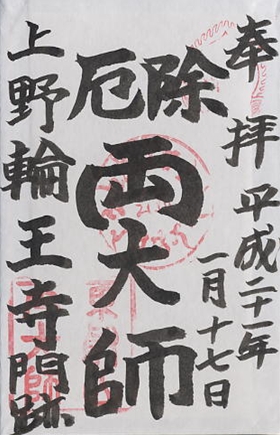 奉拝 平成二十一年
一月十七日
厄除
両大師
上野輪王寺門跡